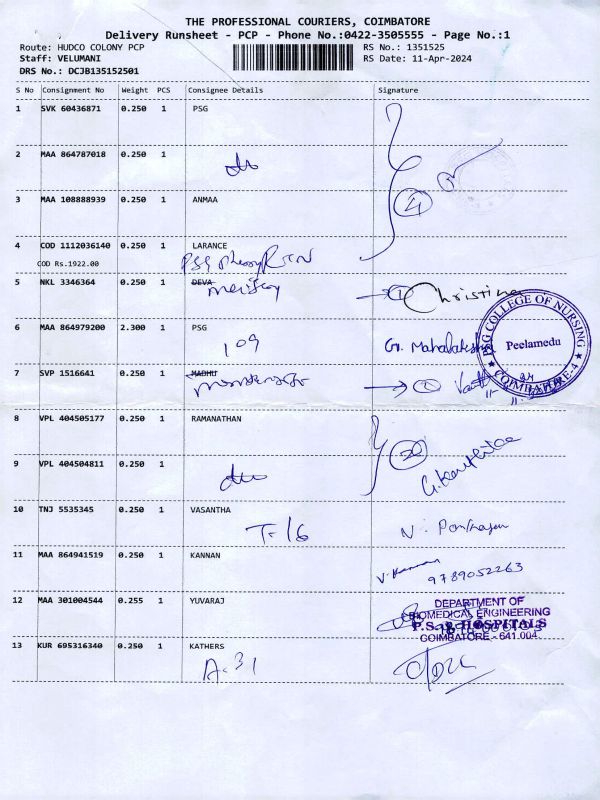 THE PROFESSIONAL COURIERS, COIMBATORE
Delivery Runsheet - PCP - Phone No.:0422-3505555 - Page No.:1
Route: HUDCO COLONY PCP
RS No.: 1351525
Staff: VELUMANI
RS Date: 11-Apr-2024
DRS No.: DCJB135152501
S No Consignment No Weight PCS Consignee Details Signature
1 SVK 60436871 0.250 1 PSG
2 MAA 864787018 0.250 1
3 MAA 108888939 0.250 1 ANMAA
4 COD 1112036140 0.250 1 LARANCE
COD Rs.1922.00
PSG
5 NKL 3346364 0.250 1 DEVA
Christina
6 MAA 864979200 2.300 1 PSG
109
PSG COLLEGE OF NURSING
Peelamedu
COIMBATORE-4
7 SVP 1516641 0.250 1 MADHU
8 VPL 404505177 0.250 1 RAMANATHAN
9 VPL 404504811 0.250 1
10 TNJ 5535345 0.250 1 VASANTHA
T-16
11 MAA 864941519 0.250 1 KANNAN
9789052263
12 MAA 301004544 0.255 1 YUVARAJ
DEPARTMENT OF
BIOMEDICAL ENGINEERING
P.S.G HOSPITALS
COIMBATORE - 641 004
13 KUR 695316340 0.250 1 KATHERS
A-31